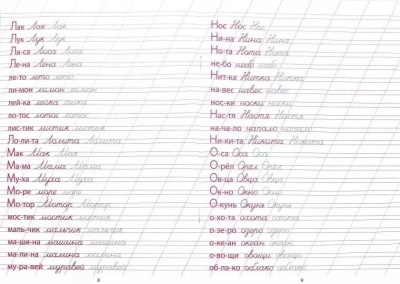 Лак Лак Лак
Лук Лук Лук
Ли-са Лиса Лиса
Ле-на Лена Лена
ле-то лето лето
ли-мон лимон лимон
лей-ка лейка лейка
ло-тос лотос лотос
лис-тик листик листик
Ло-ли-та Лолита Лолита
Мак Мак Мак
Ма-ма Мама Мама
Му-ха Муха Муха
Мо-ре море море
Мо-тор Мотор Мотор
мос-тик мостик мостик
маль-чик мальчик мальчик
ма-ши-на машина машина
ма-ли-на малина малина
му-ра-вей муравей муравей
8
Нос Нос Нос
Ни-на Нина Нина
Но-та Нота Нота
не-бо небо небо
Нит-ка Нитка Нитка
на-вес навес навес
нос-ки носки носки
Нас-тя Настя Настя
на-ча-ло начало начало
Ни-ки-та Никита Никита
О-са Оса Оса
О-рёл Орёл Орёл
Ов-ца Овца Овца
Ок-но Окно Окно
О-кунь Окунь Окунь
о-хо-та охота охота
о-зе-ро озеро озеро
о-ке-ан океан океан
о-во-щи овощи овощи
об-ла-ко облако облако
9